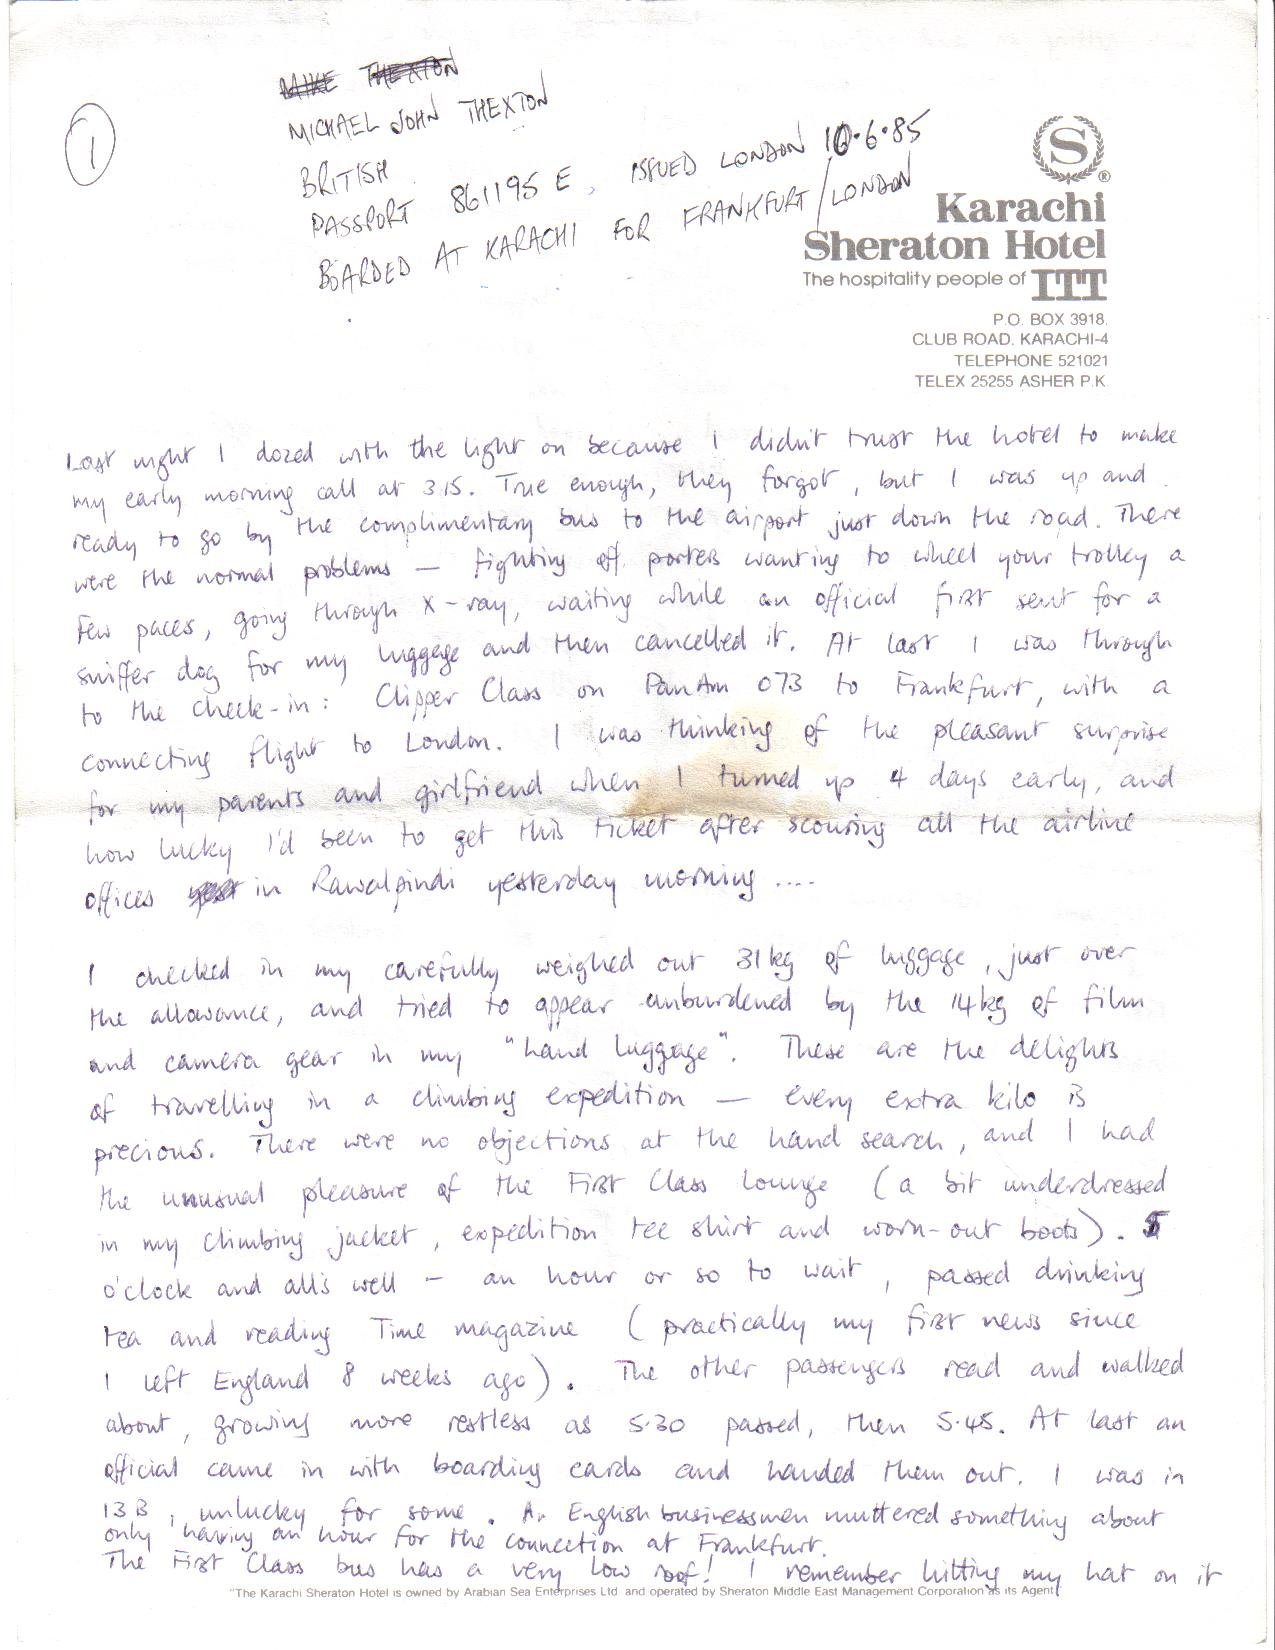 MIKE THEXTON
1
MICHAEL JOHN THEXTON
BRITISH
PASSPORT 861195 E, ISSUED LONDON 10.6.85
BOARDED AT KARACHI FOR FRANKFURT/LONDON
S
®
Karachi
Sheraton Hotel
The hospitality people of ITT
P.O. BOX 3918.
CLUB ROAD. KARACHI-4
TELEPHONE 521021
TELEX 25255 ASHER P.K.
Last night I dozed with the light on because I didn't trust the hotel to make
my early morning call at 3.15. True enough, they forgot, but I was up and
ready to go by the complimentary bus to the airport just down the road. There
were the normal problems — fighting off porters wanting to wheel your trolley a
few paces, going through X-ray, waiting while an official first sent for a
sniffer dog for my luggage and then cancelled it. At last I was through
to the check-in: Clipper Class on PanAm 073 to Frankfurt, with a
connecting flight to London. I was thinking of the pleasant surprise
for my parents and girlfriend when I turned up 4 days early, and
how lucky I'd been to get this ticket after scouring all the airline
offices in Rawalpindi yesterday morning ....
I checked in my carefully weighed out 31kg of luggage, just over
the allowance, and tried to appear unburdened by the 14kg of film
and camera gear in my "hand luggage". These are the delights
of travelling in a climbing expedition — every extra kilo is
precious. There were no objections at the hand search, and I had
the unusual pleasure of the First Class Lounge (a bit underdressed
in my climbing jacket, expedition tee shirt and worn-out boots). 5
o'clock and all's well - an hour or so to wait, passed drinking
tea and reading Time magazine (practically my first news since
I left England 8 weeks ago). The other passengers read and walked
about, growing more restless as 5.30 passed, then 5.45. At last an
official came in with boarding cards and handed them out. I was in
13B, unlucky for some. An English businessmen muttered something about
only having an hour for the connection at Frankfurt.
The First Class bus has a very low roof! I remember hitting my hat on it
"The Karachi Sheraton Hotel is owned by Arabian Sea Enterprises Ltd and operated by Sheraton Middle East Management Corporation as its Agent